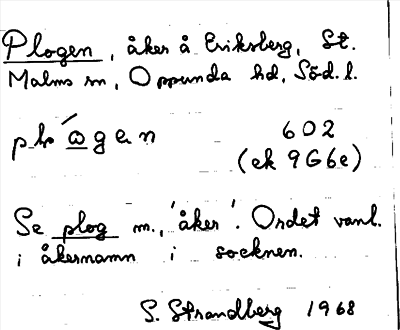 Plogen, åker å Eriksberg, St.
Malms sn, Oppunda hd, Söd. l.
602
(ek 9G6e)
Se plog m., 'åker'. Ordet vanl.
i åkernamn i socknen.
S. Strandberg 1968